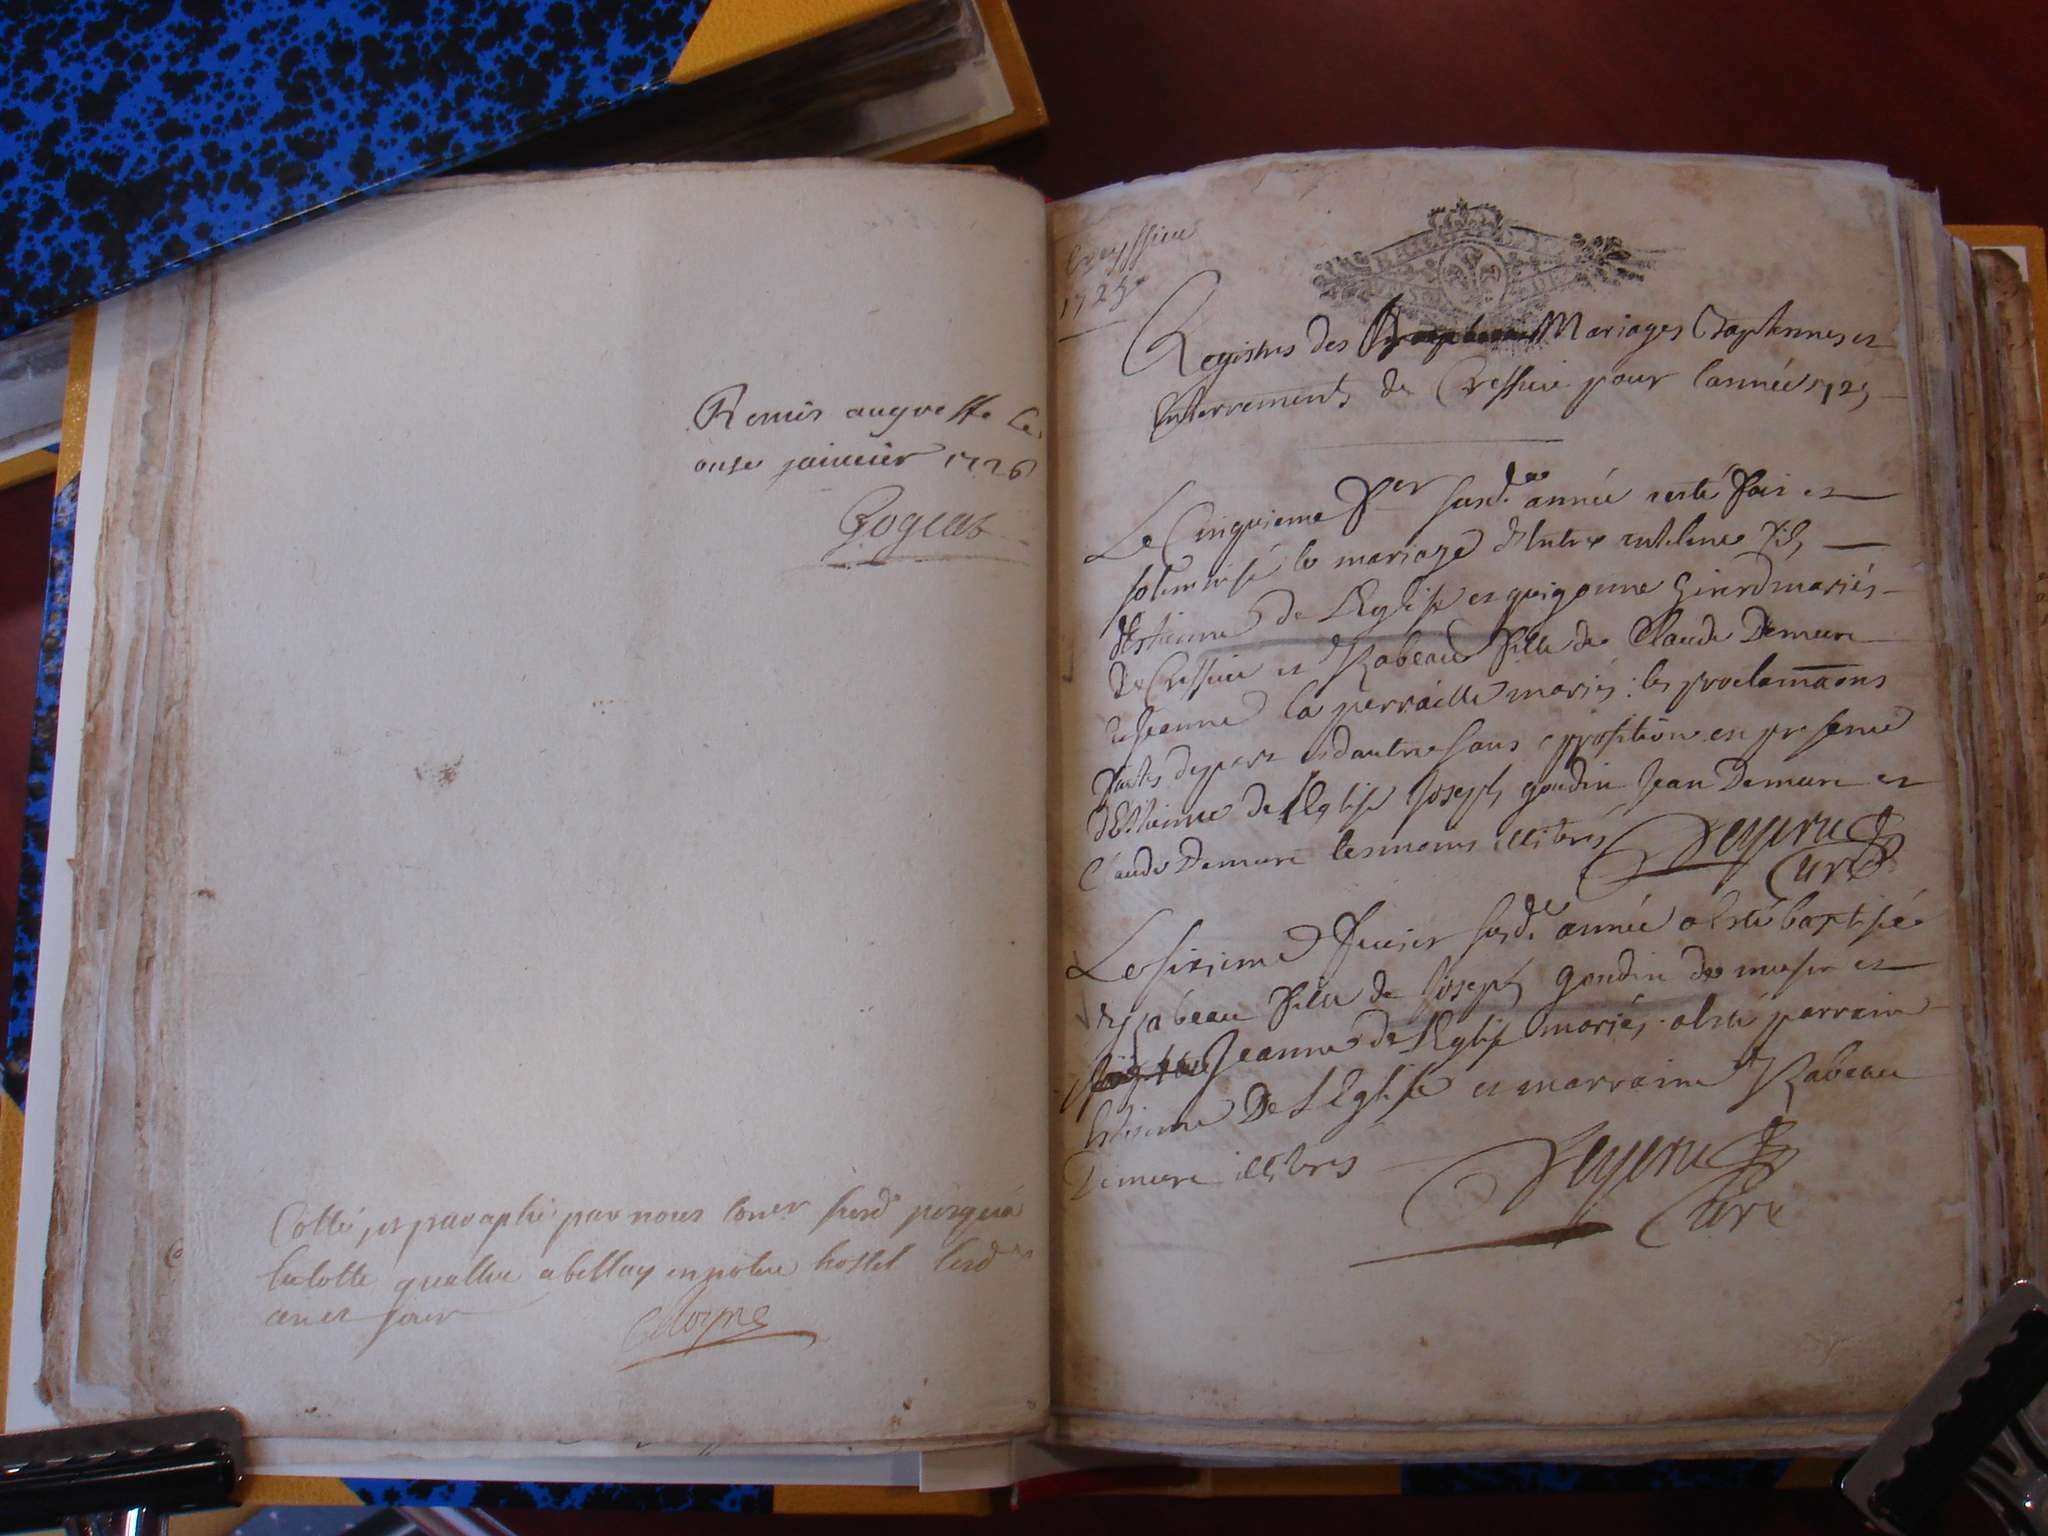 Remis au greffe le
onze janvier 1726
Cotté, et paraphé par nous
la cotte quattre a belley en notre hostel
an et jour
Creyssieu
1725
Registres des Mariages Baptesmes et
Enterrements de Cressieu pour l'année 1725
Le Cinquieme susd. année a esté fait et
solemnisé le mariage d'Entre fils
d'Estienne de L'Eglise et guigonne mariés
de Cressieu et Ysabeau fille de Claude Demeure
et Jeanne la perraille mariés : les proclamaons
faites de part et d'autre sans opposition en presence
d'Estienne de l'Eglise Joseph goudin Jean Demeure et
Claude Demeure tesmoins illitérés
Curé
Le sixieme susd. année a esté baptisée
Ysabeau fille de Joseph goudin de et
Jeanne de l'Eglise mariés. a esté parrain
Estienne De L'Eglise et marraine Ysabeau
Demeure illitérés
Curé